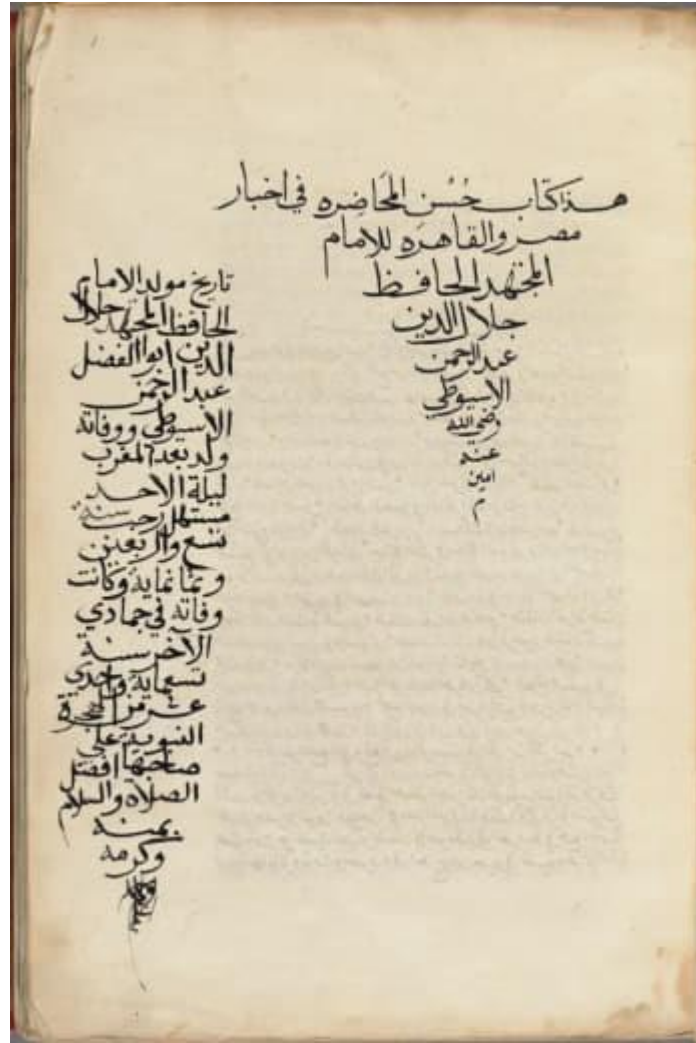 هذا كتاب حُسن المحَاضِره في اخبار
مصر والقاهرَه للامام
المجتهد الحافظ
جلال الدين
عبد الرحمن
الاسيوطي
رضي الله
عنه
امين
م
تاريخ مولد الامام
الحافظ المجتهد جلال
الدين ابو الفضل
عبد الرحمن
الاسيوطي ووفاته
ولد بعد المغرب
ليلة الاحد
مستهل رجب سنة
تسع واربعين
وثمانماية وكانت
وفاته في جمادي
الآخر سنة
تسعماية واحدي
عشر من الهجرة
النبوية علي
صاحبها افضل
الصلاه والسلام
بمنه
وكرمه